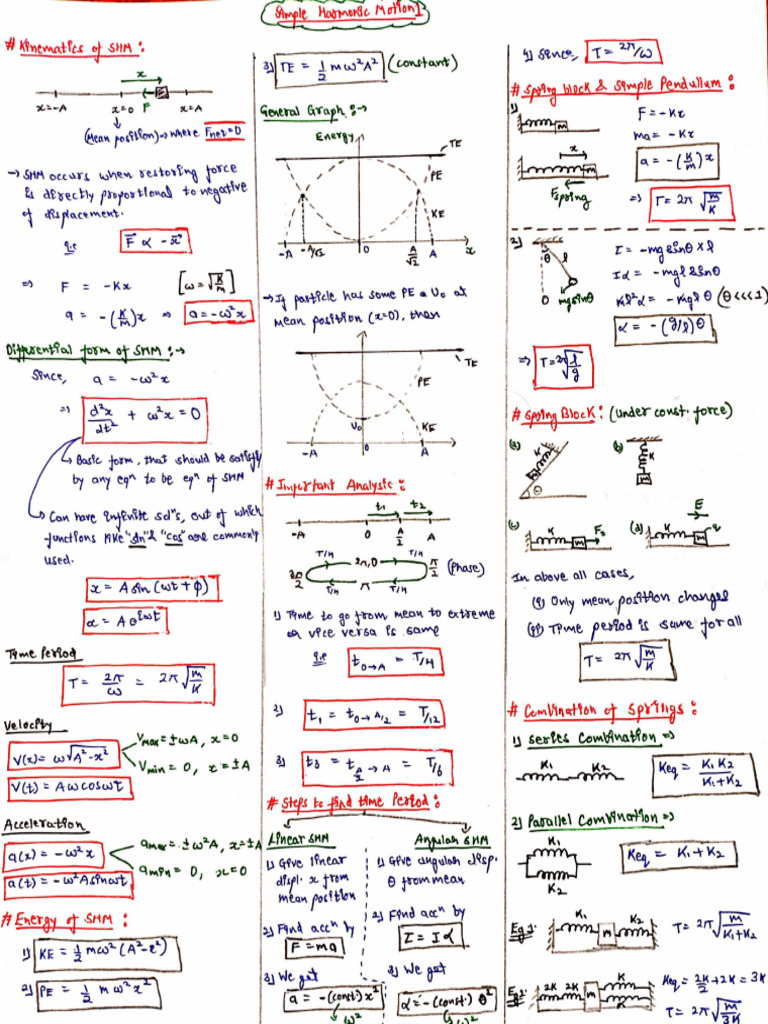 Simple Harmonic Motion
# Kinematics of SHM :
x
x=-A x=0 F x=A
(Mean position) → where Fnet=0
→ SHM occurs when restoring force
is directly proportional to negative
of displacement.
i.e F ∝ -x
⇒ F = -Kx [ω = √K/m]
a = -(K/m)x ⇒ a = -ω²x
Differential form of SHM :→
Since, a = -ω²x
⇒ d²x/dt² + ω²x = 0
↳ Basic form, that should be satisfy
by any eqⁿ to be eqⁿ of SHM
↳ Can have infinite solⁿs, out of which
functions like "sin" & "cos" are commonly
used.
x = A sin(ωt + ϕ)
x = A e^iωt
Time Period
T = 2π/ω = 2π√m/K
Velocity
V(x) = ω√A²-x²
Vmax = ±ωA, x=0
Vmin = 0, x=±A
V(t) = Aωcosωt
Acceleration
a(x) = -ω²x
amax = ±ω²A, x=±A
amin = 0, x=0
a(t) = -ω²A sinωt
# Energy of SHM :
1) KE = 1/2 mω²(A²-x²)
2) PE = 1/2 mω²x²
3) TE = 1/2 mω²A² (constant)
General Graph :→
Energy
TE
PE
KE
-A -A/√2 0 A/√2 A x
→ If particle has some PE = U₀ at
mean position (x=0), then
TE
PE
U₀ KE
-A 0 A
# Important Analysis :
t₁ t₂
-A 0 A/2 A
T/4 2π,0 T/4
3π/2 π/2 (Phase)
T/4 π T/4
1) Time to go from mean to extreme
or vice versa is same
i.e t0→A = T/4
2) t₁ = t0→A/2 = T/12
3) t₃ = tA/2→A = T/6
# Steps to find time Period :
Linear SHM
1) Give linear
displ. x from
mean position
2) Find accⁿ by
F = ma
3) We get
a = -(const) x²
ω²
Angular SHM
1) Give angular disp.
θ from mean
2) Find accⁿ by
τ = Iα
3) We get
α = -(const) θ²
ω²
4) Since, T = 2π/ω
# Spring block & Simple Pendullum :
1) m
F = -Kx
ma = -Kx
x
m
Fspring
a = -(K/m)x
⇒ T = 2π√m/K
2) θ l
0 mgsinθ
τ = -mgsinθ × l
Iα = -mglsinθ
ml²α = -mglθ (θ<<<1)
α = -(g/l)θ
⇒ T = 2π√l/g
# Spring Block : (under const. force)
(a) K m θ
(b) K m
(c) K m F₀
(d) K m E q
In above all cases,
(i) Only mean position changes
(ii) Time period is same for all
T = 2π√m/K
# Combination of springs :
1) Series Combination ⇒
K₁ K₂
Keq = K₁K₂/K₁+K₂
2) Parallel Combination ⇒
K₁
K₂
Keq = K₁+K₂
Eg 1: K₁ m K₂ T = 2π√m/K₁+K₂
Eg 2: 2K 2K m K K
Keq = 2K/2 + 2K = 3K
T = 2π√m/3K